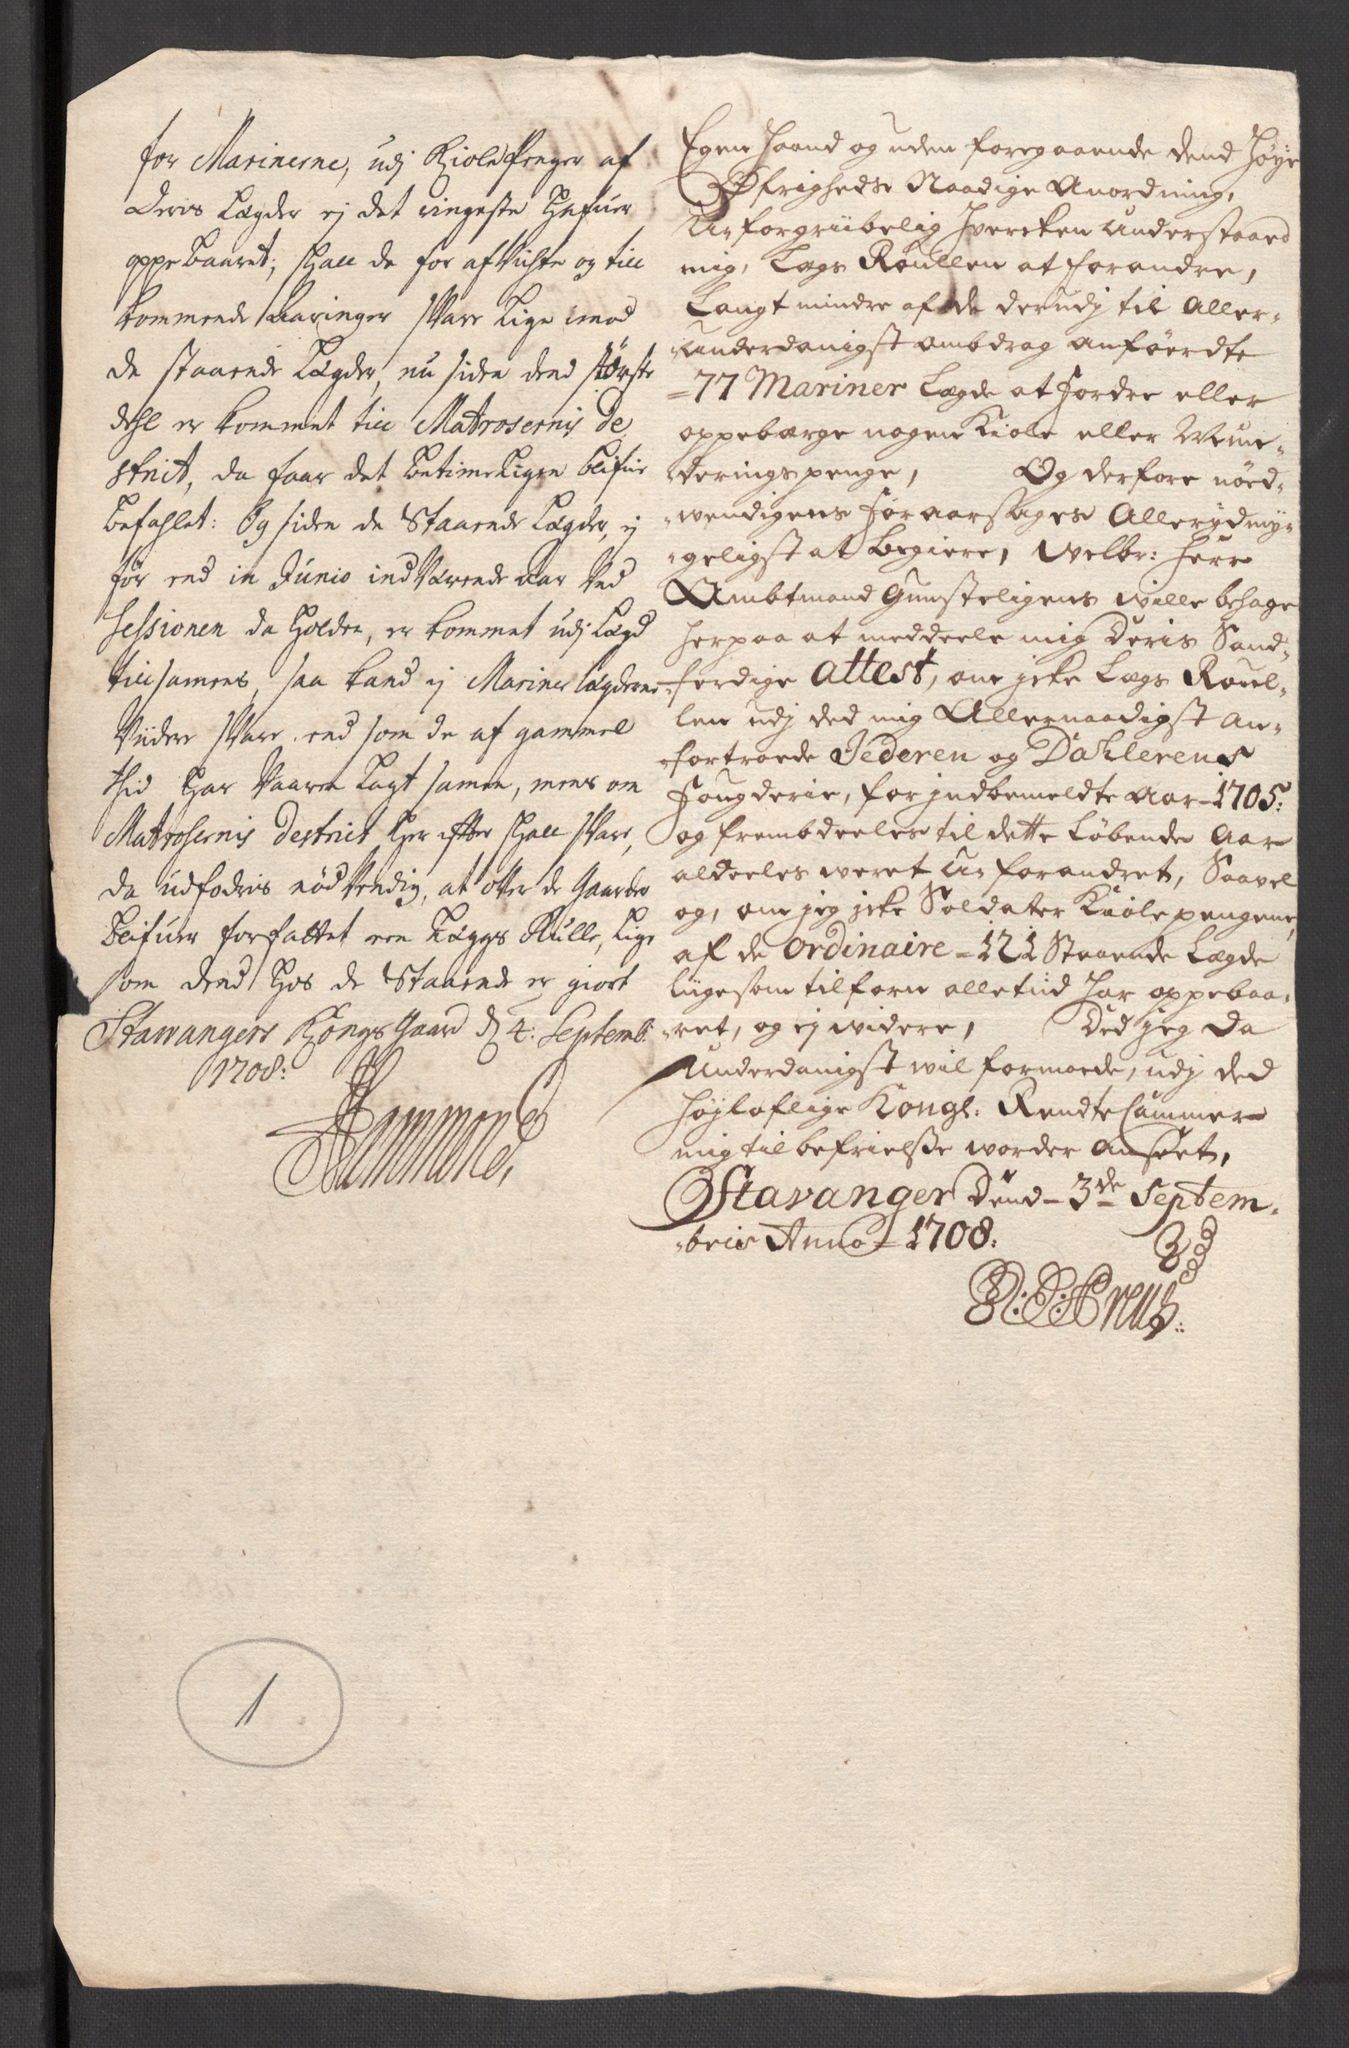 for Marinerne, udj Kiole Penger af
Deris Lægder ej det ringeste Hafuer
oppebaaret; skall de for afvichte og till
kommende Aaringer svare Lige imod
de staaende Lægder, nu siden dend største
dehl er kommet till Matrosernis De
strict, da faar det betimeligen blifue
befahlet: Og siden de Staaende Lægder, ej
før end in Junio indværende Aar ved
Sessionen da Holden, er kommet udj Lægd
tillsamens, saa kand ej Mariner Lægderne
Viidere svare end som de af gammel
thid har Vaaren Lagt samen, mens om
Matrosernis Destrict her efter skall svare,
da udfodris nødvendig, at ofver de Gaarder
blifuer forfattet een Lægs Rulle, Lige
som dend hos de Staaende er giort
Stavangers Kongsgaard d 4: Septemb:
1708:
Hammond,
Egen Haand og uden foregaaende dend Høye
Øfrigheds Naadige Anordning,
U-forgribelig hvercken understaaed
mig, Lægs Roullen at forandre,
Langt mindre af de derudj til Aller-
underdanigst ombdrag anføerdte
=77 Mariner Lægde at fordre eller
oppebærge nogen Kiole eller Mun-
deringspenge, Og derfore nød-
wendigens foraarsages Allerydmy-
geligst at begiere, Welbr: Herr
Ambtmand Gunsteligens wille behage
herpaa at meddeele mig Deris Sand-
ferdige Attest, om jcke Lægs Roul-
len udj ded mig Allernaadigst an-
fortroede Jederen og Dahlerens
Fougderie, for jndbemeldte Aar-1705:
og frembdeeles til dette Løbende Aar
aldeeles weret u-forandret, Saavel
og, om jeg jcke Soldater Kiolepengene,
af de ordinaire=121 Staaende Lægde
liigesom tilforn alletiid har oppebaa-
ret, og ej widere, Ded jeg da
underdanigst wil formoede, udj ded
Højloflige Kongl: Rendte Cammer
mig til befrielße worder anseet,
Stavanger Dend-3de Septem-
bris Anno=1708:
1